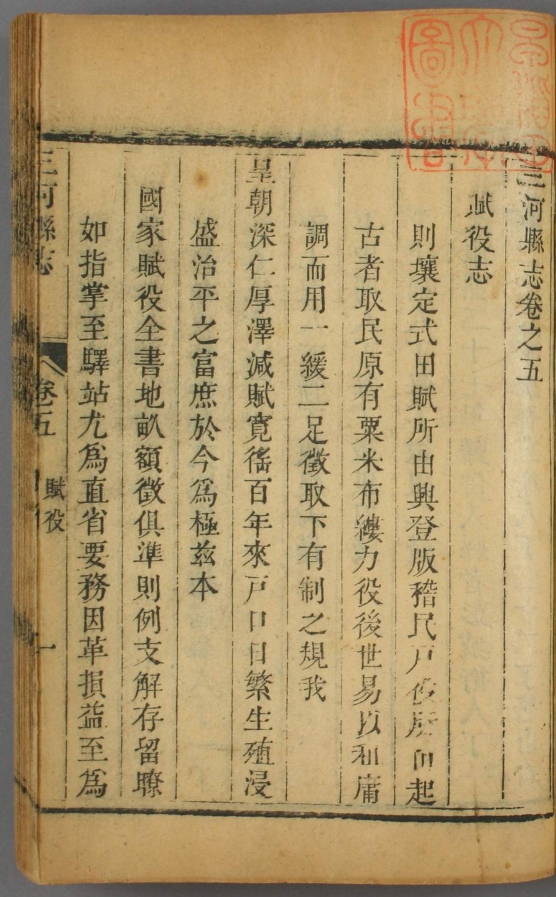 三河縣志卷之五
賦役志
則壤定式田賦所由興登版稽民戶役所由起
古者取民原有粟米布縷力役後世易以租庸
調而用一緩二足徵取下有制之規我
皇朝深仁厚澤減賦寬徭百年來戶口日繁生殖浸
盛治平之富庶於今爲極茲本
國家賦役全書地畝額徵俱準則例支解存留瞭
如指掌至驛站尤爲直省要務因革損益至爲
三河縣志 卷五 賦役 一